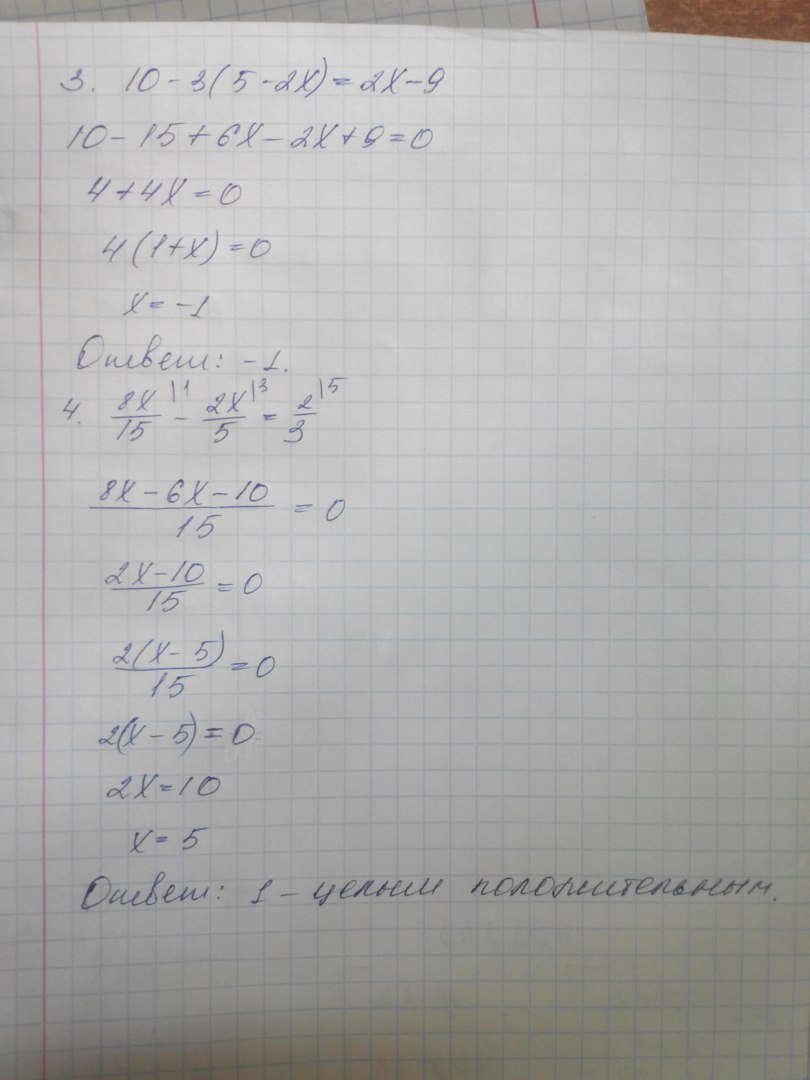 3. 10 - 3(5 - 2x) = 2x - 9
10 - 15 + 6x - 2x + 9 = 0
4 + 4x = 0
4(1 + x) = 0
x = -1
Ответ: -1.
4. 8x/15 |1 - 2x/5 |3 = 2/3 |5
8x - 6x - 10 / 15 = 0
2x - 10 / 15 = 0
2(x - 5) / 15 = 0
2(x - 5) = 0
2x = 10
x = 5
Ответ: 1 - целым положительным.